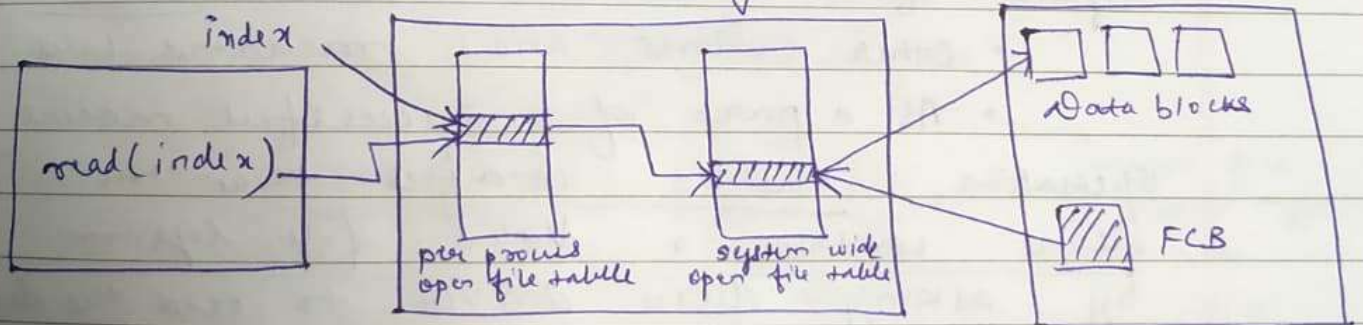 index
read(index)
per process
open file table
system wide
open file table
Data blocks
FCB